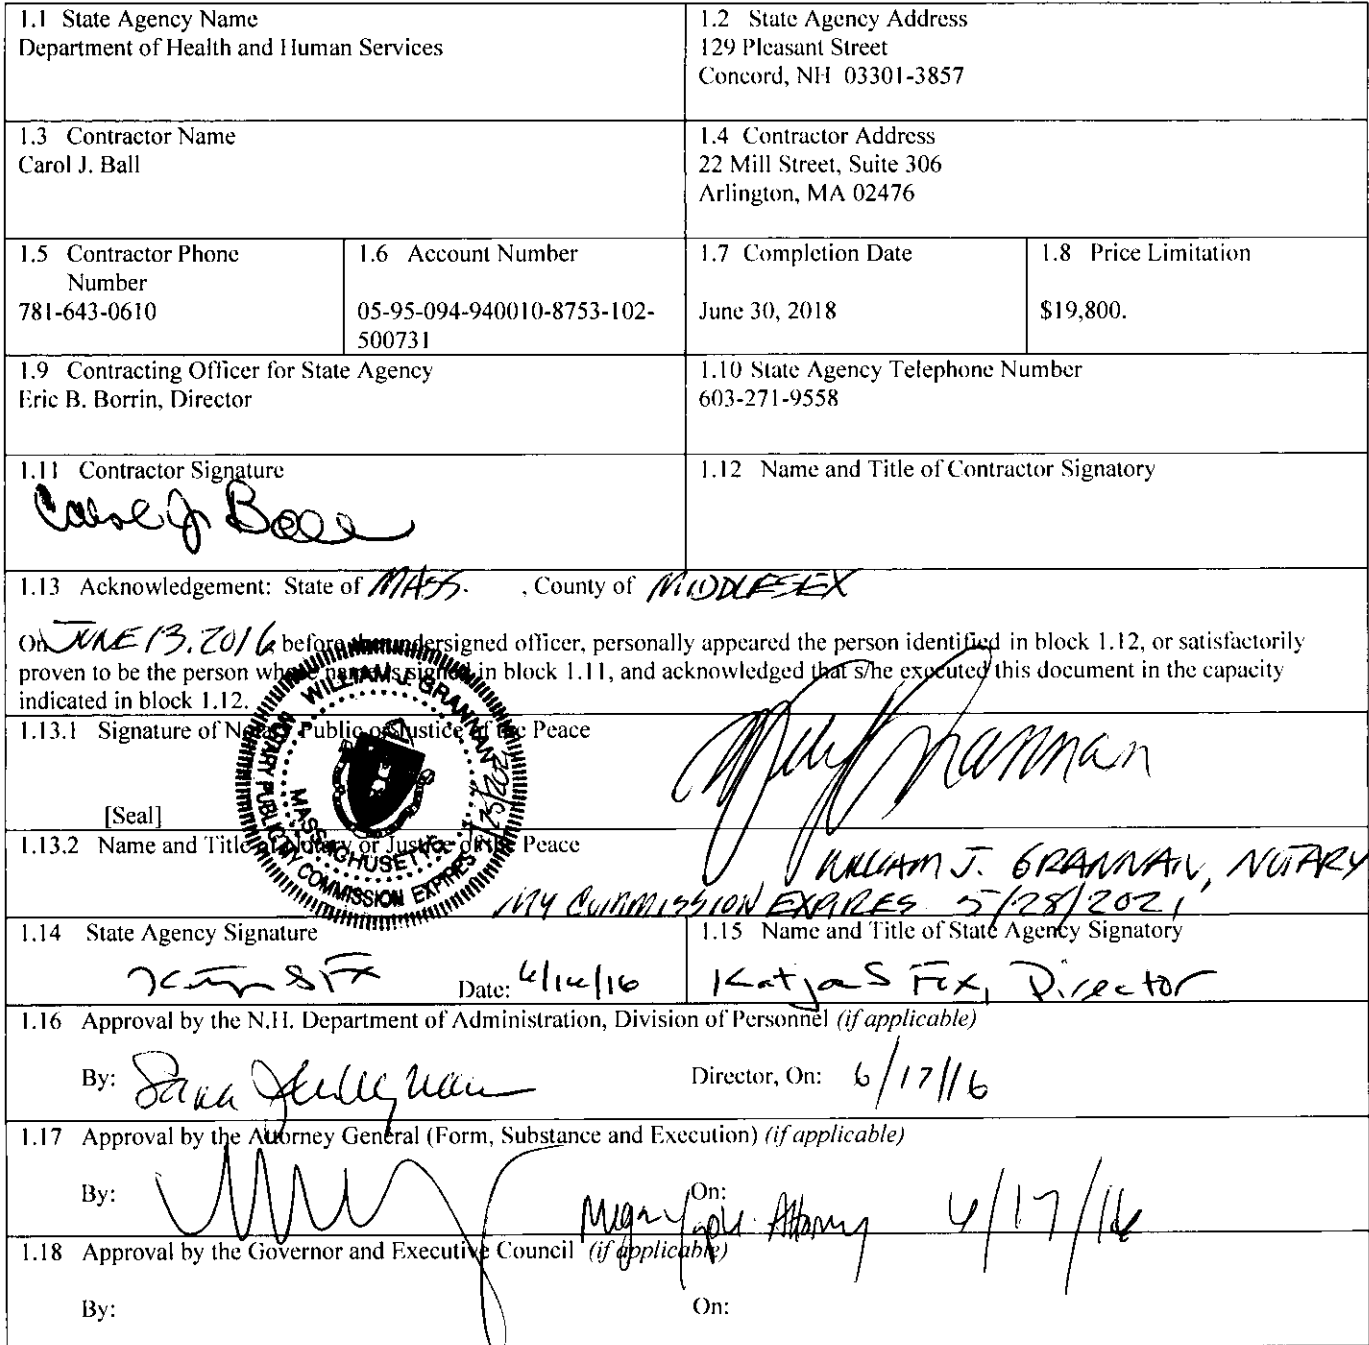 1.1 State Agency Name
Department of Health and Human Services
1.2 State Agency Address
129 Pleasant Street
Concord, NH 03301-3857
1.3 Contractor Name
Carol J. Ball
1.4 Contractor Address
22 Mill Street, Suite 306
Arlington, MA 02476
1.5 Contractor Phone
Number
781-643-0610
1.6 Account Number
05-95-094-940010-8753-102-
500731
1.7 Completion Date
June 30, 2018
1.8 Price Limitation
$19,800.
1.9 Contracting Officer for State Agency
Eric B. Borrin, Director
1.10 State Agency Telephone Number
603-271-9558
1.11 Contractor Signature
Carol J Ball
1.12 Name and Title of Contractor Signatory
1.13 Acknowledgement: State of MASS. , County of MIDDLESEX
On JUNE 13, 2016 before the undersigned officer, personally appeared the person identified in block 1.12, or satisfactorily
proven to be the person whose name is signed in block 1.11, and acknowledged that s/he executed this document in the capacity
indicated in block 1.12.
1.13.1 Signature of Notary Public or Justice of the Peace
[Seal]
WILLIAM J. GRANNAN
NOTARY PUBLIC MY COMMISSION EXPIRES
MASSACHUSETTS
1.13.2 Name and Title of Notary or Justice of the Peace
WILLIAM J. GRANNAN, NOTARY
MY COMMISSION EXPIRES 5/28/2021
1.14 State Agency Signature
Date:
1.15 Name and Title of State Agency Signatory
Katja S Fox, Director
1.16 Approval by the N.H. Department of Administration, Division of Personnel (if applicable)
By:
Director, On: 6/17/16
1.17 Approval by the Attorney General (Form, Substance and Execution) (if applicable)
By:
On:
Attorney 6/17/16
1.18 Approval by the Governor and Executive Council (if applicable)
By:
On: